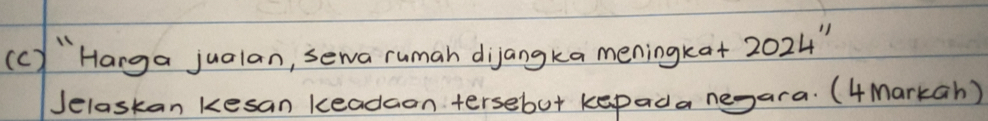 (c) "Harga jualan, sewa rumah dijangka meningkat 2024"
Jelaskan kesan keadaan tersebut kepada negara. (4 Markah)